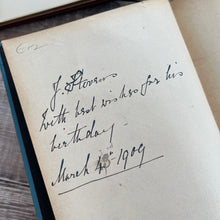 J. Stevens
With best wishes for his
birthday
March 4th 1909